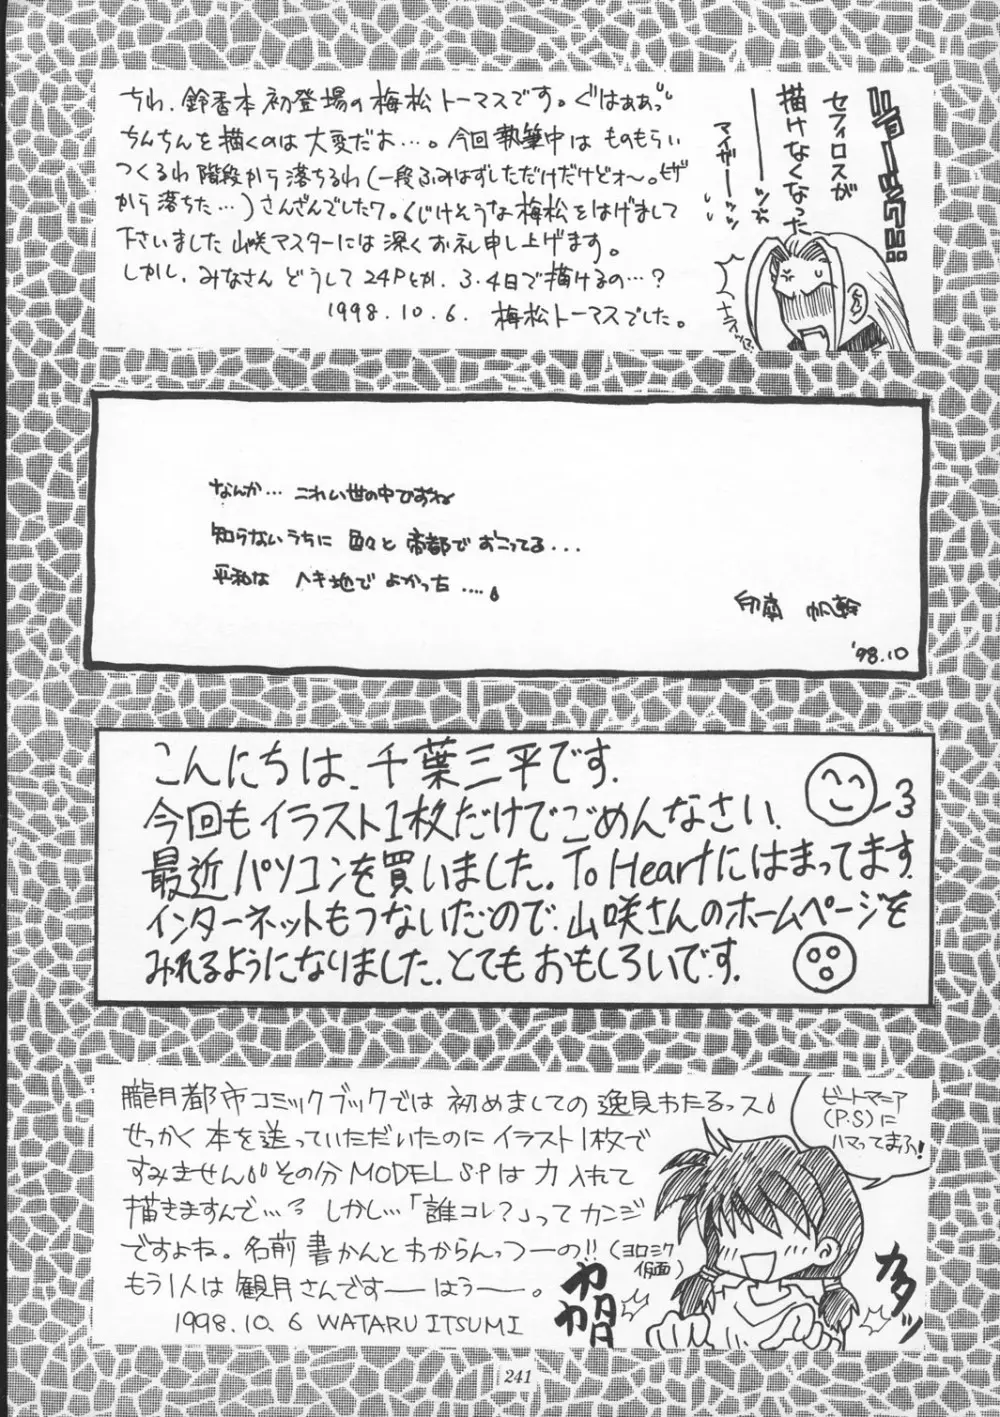 ちわ、鈴香本初登場の梅松トーマスです。ぐはぁぁっ
ちんちんを描くのは大変だぉ…。今回執筆中はものもらい
つくるわ階段から落ちるわ(一段ふみはずしただけだけどォ〜。ヒザ
から落ちた…)さんざんでしたワ。くじけそうな梅松をはげまして
下さいました山咲マスターには深くお礼申し上げます。
しかし、みなさんどうして24Pとか、3・4日で描けるの…?
1998.10.6. 梅松トーマスでした。
セフィロスが
描けなくなった
マイガーーッッ
なんか… これい世の中ですね
知らないうちに 色々と 帝都で おこってる...
平和な ヘキ地で よかった ....
'98.10
こんにちは、千葉三平です。
今回もイラスト1枚だけでごめんなさい。
最近パソコンを買いました。To Heartにはまってます。
インターネットもつないだので、山咲さんのホームページを
みれるようになりました。とてもおもしろいです。
朧月都市コミックブックでは 初めましての 逸見わたるっス!
せっかく 本を送っていただいたのに イラスト1枚で
すみません!! その分 MODEL S.Pは 力 入れて
描きますんで…? しかし…「誰コレ?」って カンジ
ですよね。名前 書かんと わからんっつーの!!(ヨロミク仮面)
もう1人は 観月さんですーーはぅーー。
1998.10.6 WATARU ITSUMI
ビートマニア
(P.S)に
ハマってまふ!
カタッッ
241